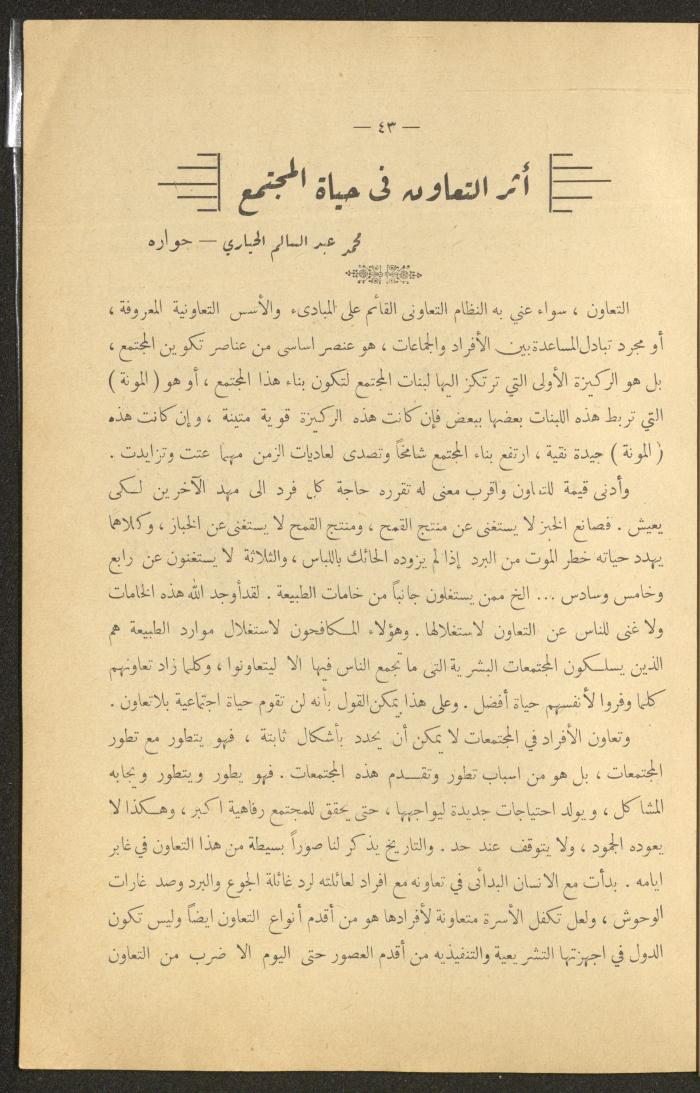 — ٤٣ —
أثر التعاون فى حياة المجتمع
محمد عبد السالم الحياري — حواره
التعاون ، سواء عني به النظام التعاونى القائم على المبادىء والأسس التعاونية المعروفة ،
أو مجرد تبادل المساعدة بين الأفراد والجماعات ، هو عنصر اساسى من عناصر تكوين المجتمع ،
بل هو الركيزة الأولى التي ترتكز اليها لبنات المجتمع لتكون بناء هذا المجتمع ، أو هو ( المونة )
التي تربط هذه اللبنات بعضها ببعض فإن كانت هذه الركيزة قوية متينة ، وإن كانت هذه
( المونة ) جيدة نقية ، ارتفع بناء المجتمع شامخاً وتصدى لعاديات الزمن مهما عتت وتزايدت .
وأدنى قيمة للتعاون واقرب معنى له تقرره حاجة كل فرد الى مهد الآخرين لكى
يعيش . فصانع الخبز لا يستغنى عن منتج القمح ، ومنتج القمح لا يستغنى عن الخباز ، وكلاهما
يهدد حياته خطر الموت من البرد إذا لم يزوده الحائك باللباس ، والثلاثة لا يستغنون عن رابع
وخامس وسادس ... الخ ممن يستغلون جانباً من خامات الطبيعة . لقد أوجد الله هذه الخامات
ولا غنى للناس عن التعاون لاستغلالها . وهؤلاء المكافحون لاستغلال موارد الطبيعة هم
الذين يسلكون المجتمعات البشرية التى ما تجمع الناس فيها الا ليتعاونوا ، وكلما زاد تعاونهم
كلما وفروا لأنفسهم حياة أفضل . وعلى هذا يمكن القول بأنه لن تقوم حياة اجتماعية بلا تعاون .
وتعاون الأفراد في المجتمعات لا يمكن أن يحدد بأشكال ثابتة ، فهو يتطور مع تطور
المجتمعات ، بل هو من اسباب تطور وتقدم هذه المجتمعات . فهو يطور ويتطور ويجابه
المشاكل ، ويولد احتياجات جديدة ليواجهها ، حتى يحقق للمجتمع رفاهية اكبر ، وهكذا لا
يعوده الجمود ، ولا يتوقف عند حد . والتاريخ يذكر لنا صوراً بسيطة من هذا التعاون في غابر
ايامه . بدأت مع الانسان البدائى في تعاونه مع افراد لعائلته لرد غائلة الجوع والبرد وصد غارات
الوحوش ، ولعل تكفل الأسرة متعاونة لأفرادها هو من أقدم أنواع التعاون ايضاً وليس تكون
الدول في اجهزتها التشريعية والتنفيذيه من أقدم العصور حتى اليوم الا ضرب من التعاون